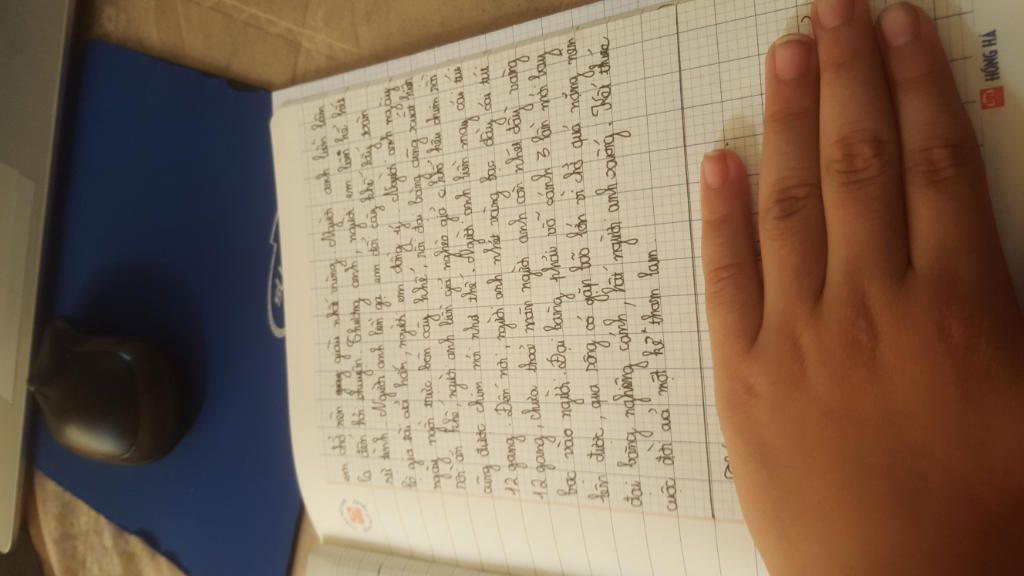 em chỉ nên quả nhà mang. Người anh liền hôm
la đến hỏi chuyện. Thương anh, người em liền kể hết
sự tình. Người anh liền gạ em đổi cây khế lấy toàn
bộ gia tài của hắn, người em đồng ý. Người anh ngày
ngày nằm trực bên cây khế, rồi đại bàng cũng xuất hiện
nó ăn khế, người anh liền giả nghèo giả khổ kêu than rồi
cũng được chim nói như thế. Người anh liền may cái túi
12 gang. Đến nơi, người anh nhét vàng bạc đầy cái túi
12 gang, chưa thoả mãn người anh còn nhét đầy vàng
bạc vào người. Đại bàng phải vỗ cánh 3 lần mới bay
lên được, qua sông có gặp bão lớn vì chở quá nặng nên
đại bàng nghiêng cánh, hất người anh xuống. Kết thúc
cuộc đời của một kẻ tham lam
HỒNG HÀ